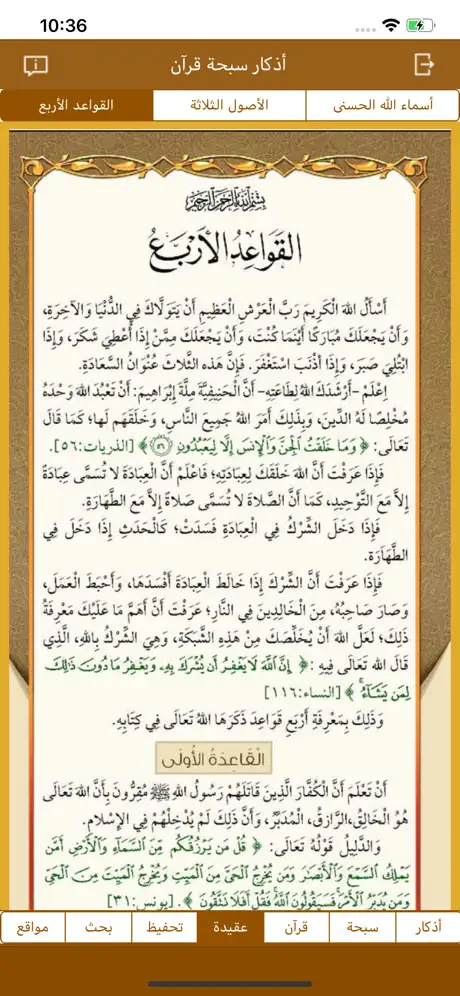 10:36
أذكار سبحة قرآن
أسماء الله الحسنى
الأصول الثلاثة
القواعد الأربع
بِسْمِ اللَّهِ الرَّحْمَنِ الرَّحِيمِ
القَوَاعِدُ الأَرْبَعُ
أَسْأَلُ اللهَ الْكَرِيمَ رَبَّ الْعَرْشِ الْعَظِيمِ أَنْ يَتَوَلاَّكَ فِي الدُّنْيَا وَالآخِرَةِ،
وَأَنْ يَجْعَلَكَ مُبَارَكًا أَيْنَمَا كُنْتَ، وَأَنْ يَجْعَلَكَ مِمَّنْ إِذَا أُعْطِيَ شَكَرَ، وَإِذَا
ابْتُلِيَ صَبَرَ، وَإِذَا أَذْنَبَ اسْتَغْفَرَ. فَإِنَّ هَذِهِ الثَّلاثَ عُنْوَانُ السَّعَادَةِ.
اِعْلَمْ -أَرْشَدَكَ اللهُ لِطَاعَتِهِ- أَنَّ الْحَنِيفِيَّةَ مِلَّةَ إِبْرَاهِيمَ: أَنْ تَعْبُدَ اللهَ وَحْدَهُ
مُخْلِصًا لَهُ الدِّينَ، وَبِذَلِكَ أَمَرَ اللهُ جَمِيعَ النَّاسِ، وَخَلَقَهُم لَها؛ كَمَا قَالَ
تَعَالَى: ﴿ وَمَا خَلَقْتُ الْجِنَّ وَالْإِنسَ إِلَّا لِيَعْبُدُونِ ۝٥٦ ﴾ [الذريات:٥٦].
فَإِذَا عَرَفْتَ أَنَّ اللهَ خَلَقَكَ لِعِبَادَتِهِ؛ فَاعْلَمْ أَنَّ الْعِبَادَةَ لا تُسَمَّى عِبَادَةً
إِلاَّ مَعَ التَّوْحِيدِ، كَمَا أَنَّ الصَّلاةَ لا تُسَمَّى صَلاةً إِلاَّ مَعَ الطَّهَارَةِ.
فَإِذَا دَخَلَ الشِّرْكُ فِي الْعِبَادَةِ فَسَدَتْ؛ كَالْحَدَثِ إِذَا دَخَلَ فِي
الطَّهَارَةِ.
فَإِذَا عَرَفْتَ أَنَّ الشِّرْكَ إِذَا خَالَطَ الْعِبَادَةَ أَفْسَدَهَا، وَأَحْبَطَ الْعَمَلَ،
وَصَارَ صَاحِبُهُ، مِنَ الْخَالِدِينَ فِي النَّارِ؛ عَرَفْتَ أَنَّ أَهَمَّ مَا عَلَيْكَ مَعْرِفَةُ
ذَلِكَ؛ لَعَلَّ اللهَ أَنْ يُخَلِّصَكَ مِنْ هَذِهِ الشَّبَكَةِ، وَهِيَ الشِّرْكُ بِاللهِ، الَّذِي
قَالَ الله تَعَالَى فِيهِ :﴿ إِنَّ اللَّهَ لَا يَغْفِرُ أَن يُشْرَكَ بِهِ وَيَغْفِرُ مَا دُونَ ذَٰلِكَ
لِمَن يَشَاءُ ﴾ [النساء:١١٦]
وَذَلِكَ بِمَعْرِفَةِ أَرْبَعِ قَوَاعِدَ ذَكَرَهَا اللهُ تَعَالَى فِي كِتَابِهِ.
الْقَاعِدَةُ الأُولَى
أَنْ تَعْلَمَ أَنَّ الْكُفَّارَ الَّذِينَ قَاتَلَهُمْ رَسُولُ اللهِ ﷺ مُقِرُّونَ بِأَنَّ اللهَ تَعَالَى
هُوَ الْخَالِقُ،الرَّازِقُ، الْمُدَبِّرُ، وَأَنَّ ذَلِكَ لَمْ يُدْخِلْهُمْ فِي الإِسْلامِ.
وَالدَّلِيلُ قَوْلُهُ تَعَالَى: ﴿ قُلْ مَن يَرْزُقُكُم مِّنَ السَّمَاءِ وَالْأَرْضِ أَمَّن
يَمْلِكُ السَّمْعَ وَالْأَبْصَارَ وَمَن يُخْرِجُ الْحَيَّ مِنَ الْمَيِّتِ وَيُخْرِجُ الْمَيِّتَ مِنَ الْحَيِّ
وَمَن يُدَبِّرُ الْأَمْرَ فَسَيَقُولُونَ اللَّهُ فَقُلْ أَفَلَا تَتَّقُونَ ﴾. [يونس:٣١]
أذكار
سبحة
قرآن
عقيدة
تحفيظ
بحث
مواقع